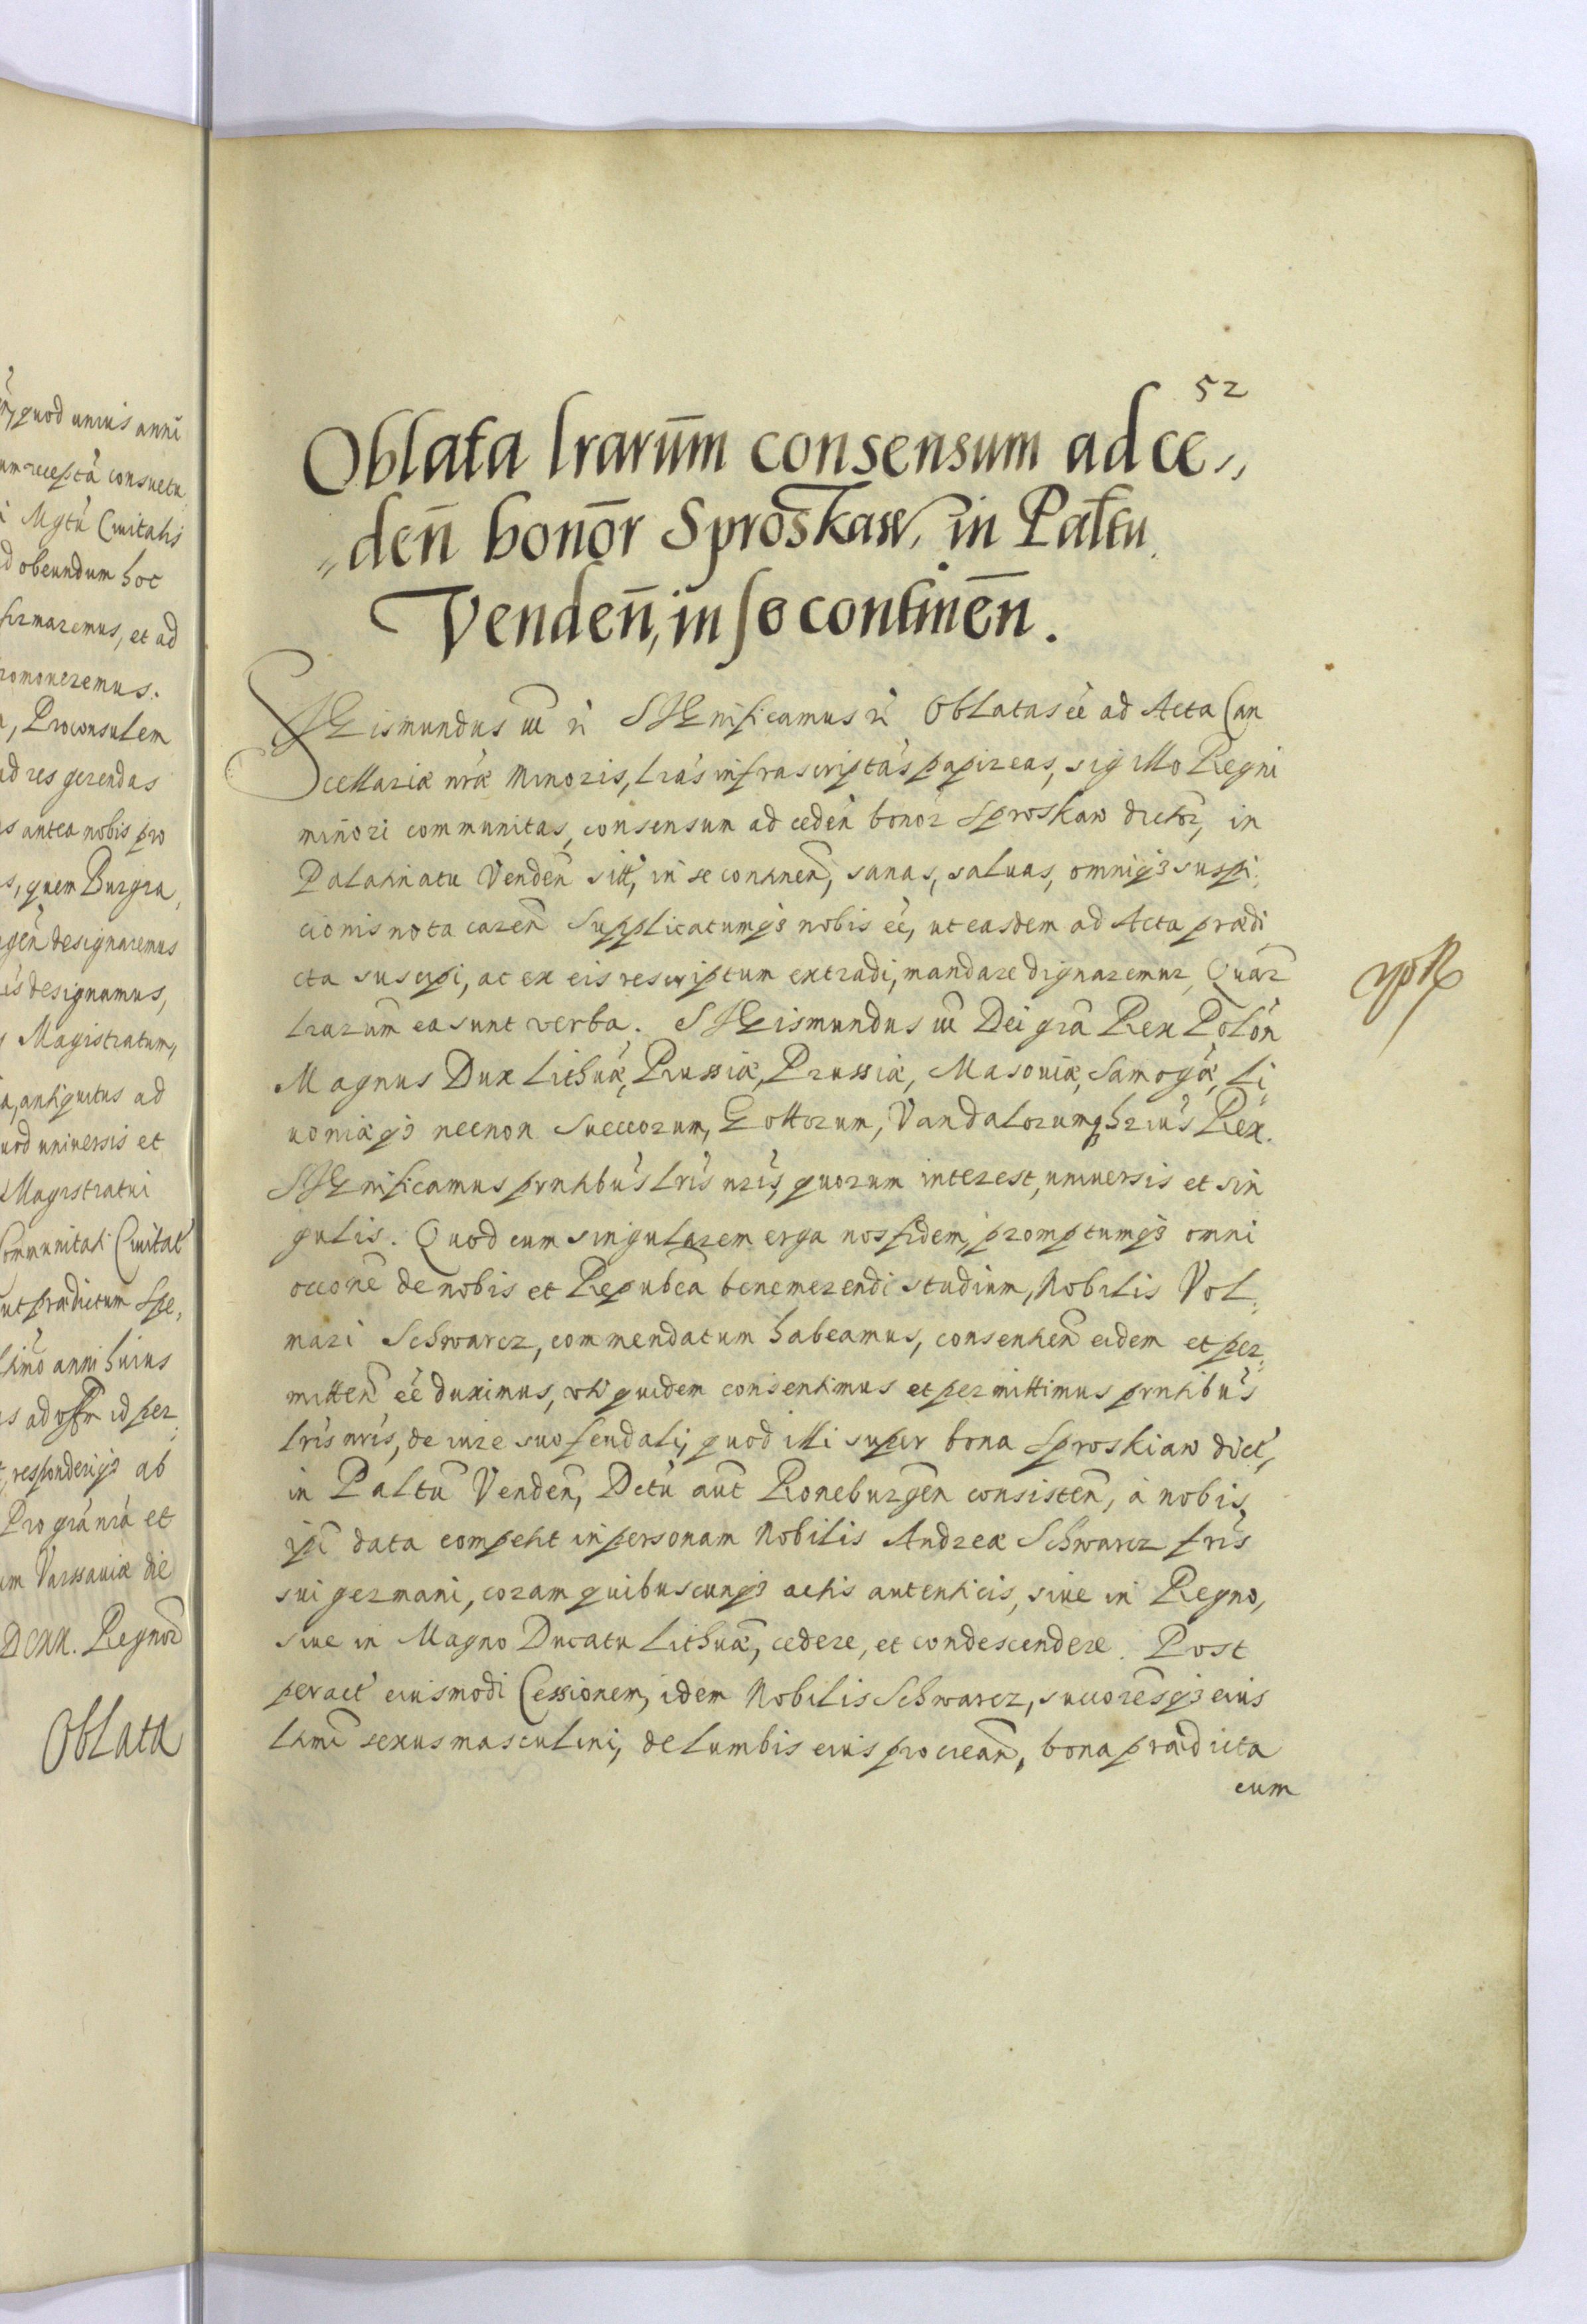 quod unius anni
um recepta consuetu
Mgtu Civitatis
d obeundum hoc
firmaremus, et ad
romoveremus.
Proconsulem
ad res gerendas
s antea nobis pro
s, quem Burgra,
gen designaremus
is designamus,
Magistratum,
a, antiquitus ad
uod universis et
Magistratui
Communitati Civitat
ut praedictum Spe,
timo anni huius
id per
responderiq3 ab
Pro gra nra et
um Varssaviæ die
DCXX. Regnor
Oblata
52
Oblata lrarūm consensum ad ce,,
,,den̄ bonōr Sproskaw, in Paltu
Venden̄, in se continēn.
SIGismundus iii r̃ SIGnificamus r̃ Oblatas ee̓ ad Acta Can
cellariæ nr̃æ Minoris, lras infrascriptas papireas, sigillo Regni
minori communitas, consensum ad ceden̓ bonor̓ Sproskaw dictor̃, in
Palatinatu Venden̄ sitt, in se continen̄, sanas, salvas, omniq3 suspi,
cionis nota caren̄ Supplicatumq3 nobis ee̓, ut easdem ad Acta prædi
cta suscipi, ac ex eis rescriptum extradi, mandare dignaremur, Quar̃
lrarum̄ ea sunt verba. SIGismundus iii Dei gra̓ Rex Polon̓
Magnus Dux Lithuæ̓, Russiæ, Prussiæ, Masoviæ, Samogæ̓, Li,
voniæq3 necnon Suecorum, Gottorum, Vandalorumq3 hrius̓ Rex.
SIGnificamus prntibus̓ lris̓ nris̓, quorum interest, universis et sin
gulis. Quod cum singularem erga nos fidem, promptumq3 omni
occone̓ de nobis et Republca̓ benemerendi studium, Nobilis Vol,
mari Schwarcz, commendatum habeamus, consentien̄ eidem et per,
mitten̄ ee̓ duximus, uti quidem consentimus et permittimus prntibus̓
lris̓ nris̓, de iure suo feudali, quod illi super bona Sproskiaw dict̓,
in Paltu̓ Venden̄, Dctu̓ aut̄ Roneburgen̄ consisten̄, a nobis
ipi̓ data competit in personam Nobilis Andreæ Schwarcz fris̓
sui germani, coram quibuscunq3 actis autenticis, sive in Regno,
sive in Magno Ducatu Lithuæ̓, cedere, et condescendere. Post
peract̓ eiusmodi Cessionem, idem Nobilis Schwarcz, succoresq3 eius
ltimi̓ sexus masculini, de lumbis eius procrean̄, bona prædicta
cum